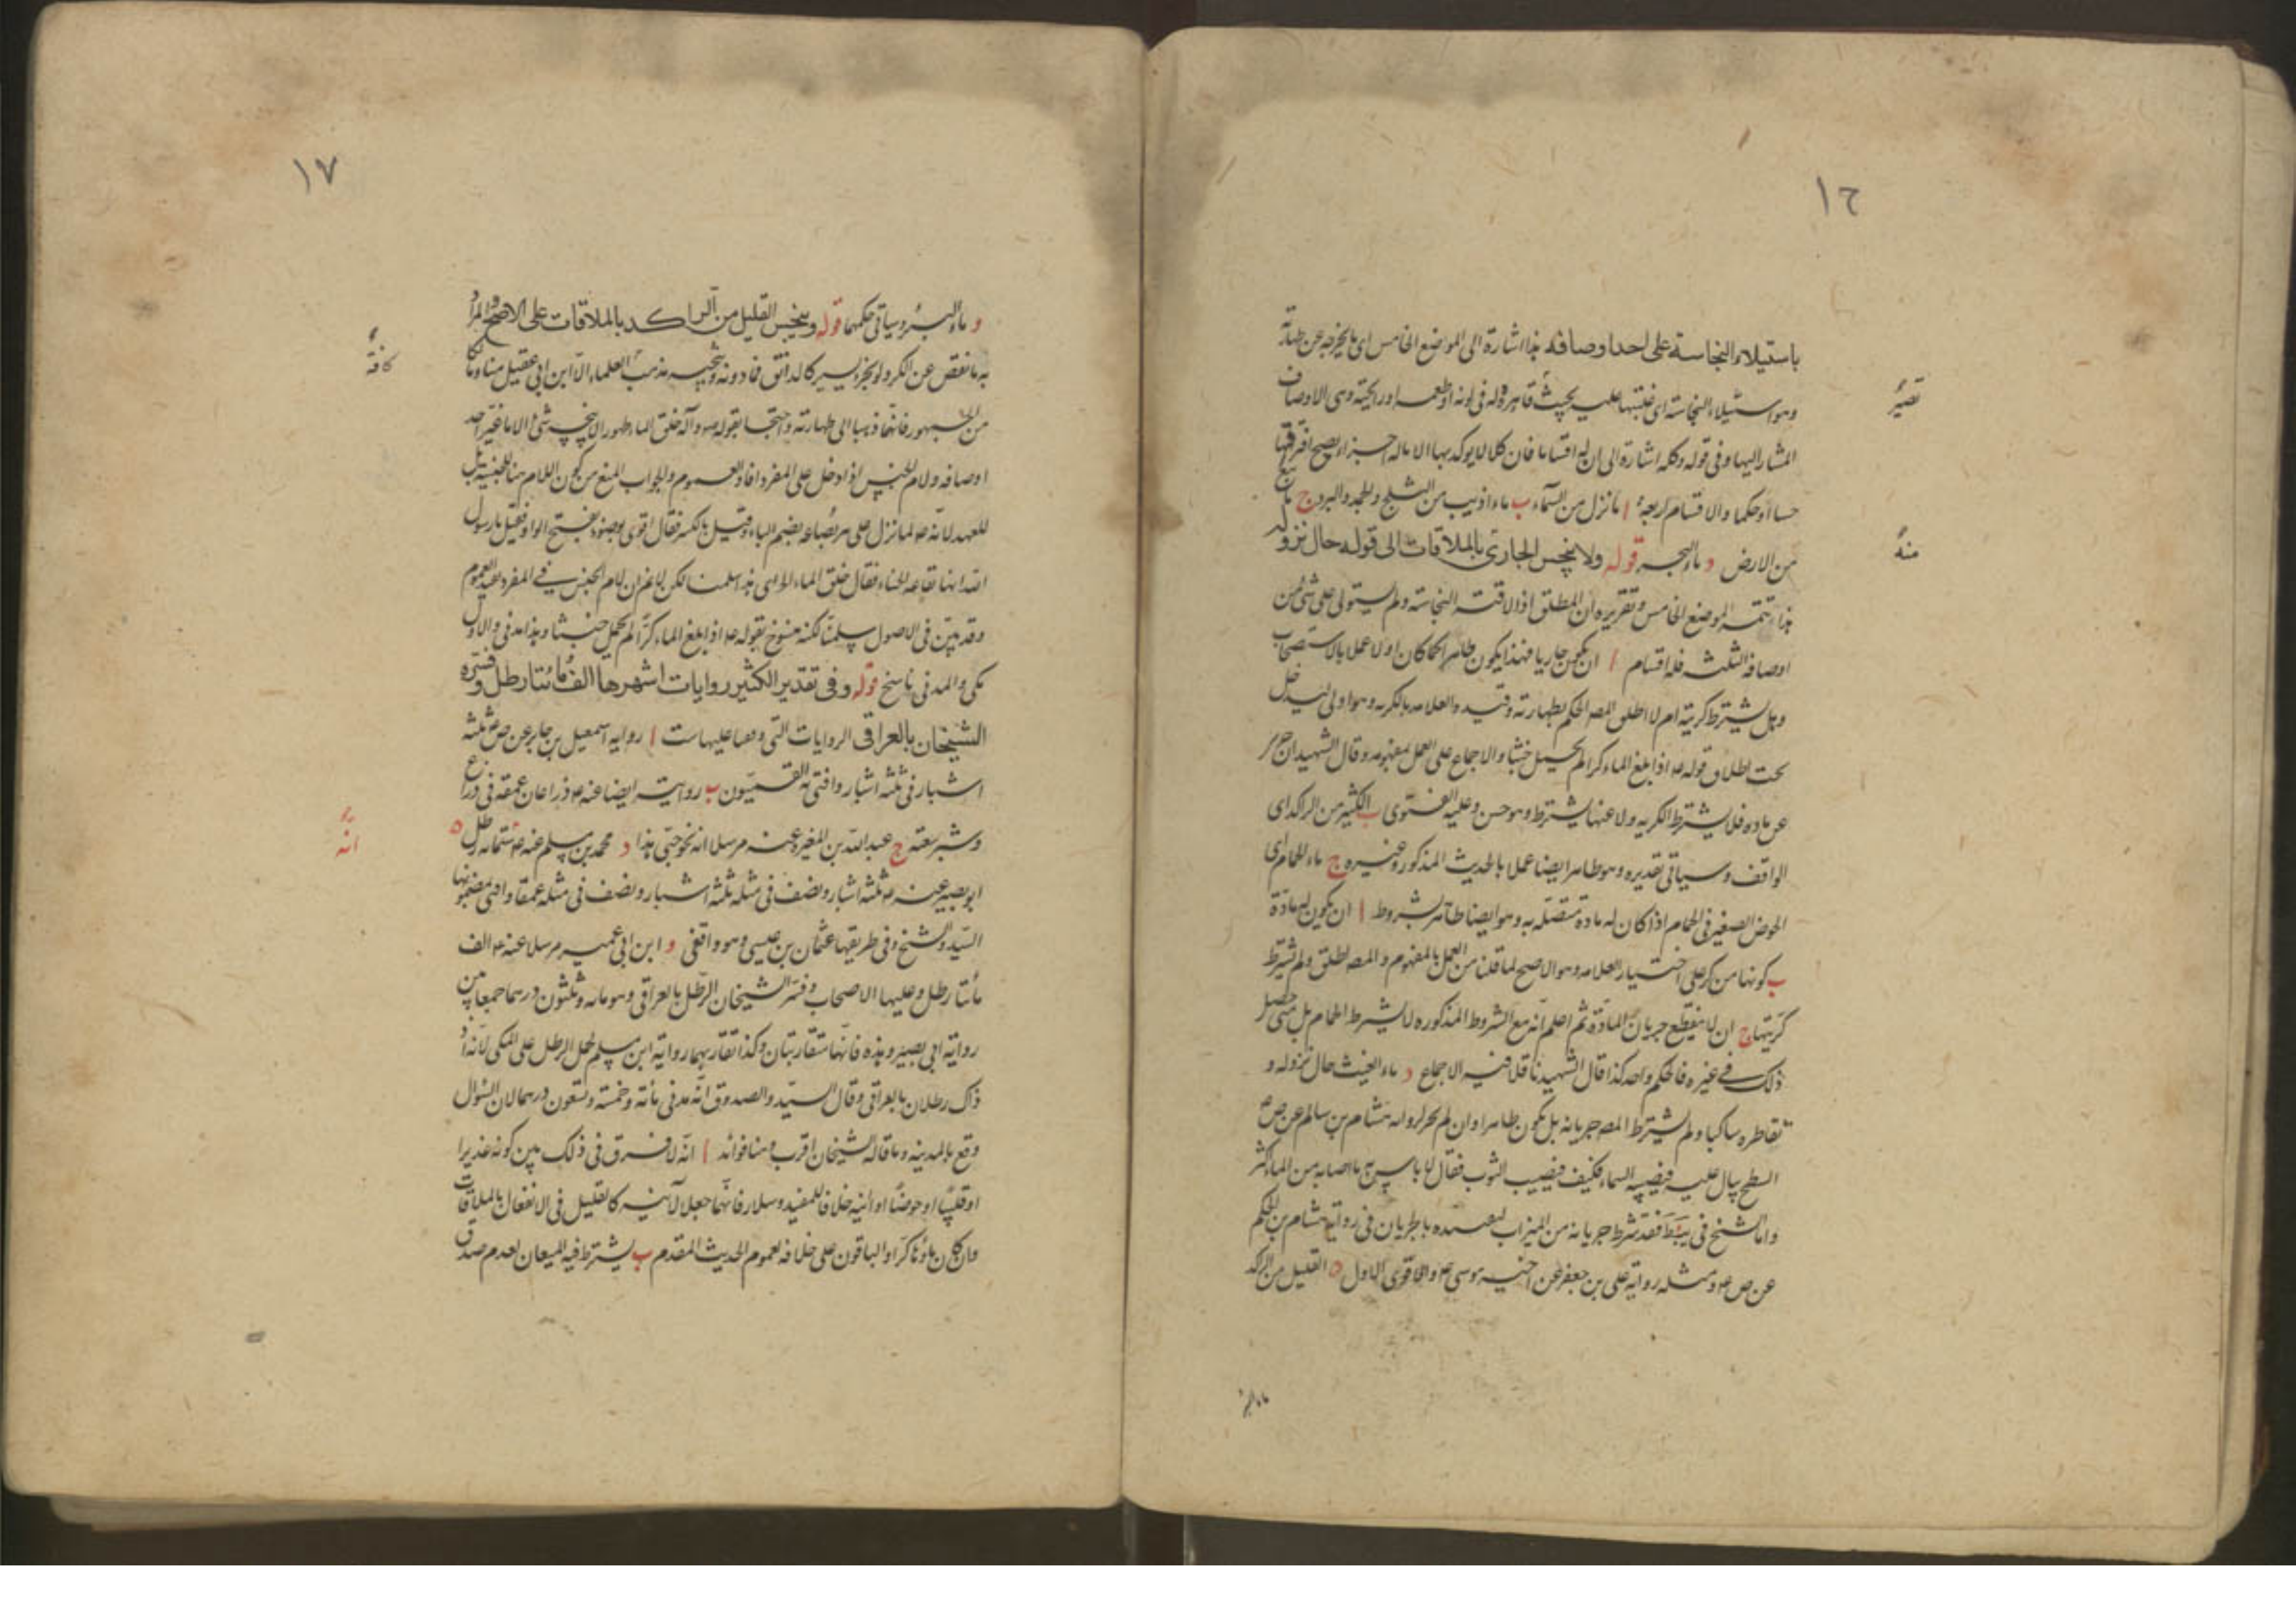 ١٦
باستيلاء النجاسة على احد اوصافه هذا اشارة الى الموضع الخامس اى ما يخرجه عن طهارته
وهو استيلاء النجاسة اى غلبتها عليه بحيث قاهرة له فى لونه او طعمه او رايحته وهى الاوصاف
المشار اليها وفى قوله وكله اشارة الى ان له اقساما فان كلا لا يوكد بها الا ماله اجزاء يصح افتراقها
حسا او حكما والاقسام اربعة ا ما نزل من السماء ب ماء اذيب من الثلج والجمد والبرد ج ما نبع
من الارض د ماء البحر قوله ولا ينجس الجارى بالملاقات الى قوله حال نزوله
هذا تتمة الموضع الخامس وتقريره ان المطلق اذا لاقته النجاسة ولم يستولى على شئ من
اوصافه الثلثة فله اقسام ا ان يكون جاريا فهذا يكون طاهرا كما كان اولا عملا بالاستصحاب
وهل يشترط كريته ام لا اطلق المصـ الحكم بطهارته وقيده العلامه بالكريه وهو اولى ليدخل
تحت اطلاق قوله ع اذا بلغ الماء كرا لم يحمل خبثا والاجماع على العمل بمفهومه وقال الشهيد ان جرى
عن ماده فلا يشترط الكريه ولا عنها يشترط وهو حسن وعليه الفتوى ب الكثير من الراكد اى
الواقف وسياتى تقديره وهو طاهر ايضا عملا بالحديث المذكور وغيره ج ماء الحمام اى
الحوض الصغير فى الحمام اذا كان له مادة متصله به وهو ايضا طاهر بشروط ا ان يكون له مادة
ب كونها من كر على اختيار العلامه وهو الاصح لما قلنا من العمل بالمفهوم والمصـ اطلق ولم يشترط
كريتها ج ان لا ينقطع جريان المادة ثم اعلم انه مع الشروط المذكوره لا يشترط الحمام بل متى حصل
ذلك فى غيره فالحكم واحد كذا قال الشهيد ناقلا فيه الاجماع د ماء الغيث حال نزوله و
تقاطره ساكبا ولم يشترط المصـ جريانه بل يكون طاهرا وان لم يجر لروايه هشام بن سالم عن ص ع
السطح يبال عليه فيصيبه السماء فيكف فيصيب الثوب فقال لا باس به ما اصابه من الماء اكثر
واما الشيخ فى يب وط فقد شرط جريانه من الميزاب لتعبيده بالجريان فى رواية هشام بن الحكم
عن ص ع ومثله رواية على بن جعفر عن اخيه موسى ع والاقوى الاول ه القليل من الراكد
تصير
منه
ماء البئر
١٧
و ماء البئر وسياتى حكمهما قوله وينجس القليل من الراكد بالملاقات على الاصح المراد
به ما نقص عن الكر ولو بجزء يسير كالدانق فما دونه وتنجيسه مذهب العلماء الا ابن ابى عقيل منا ومالكا
من الجمهور فانهما ذهبا الى طهارته واحتجا بقوله ص وآله خلق الماء طهورا لا ينجسه شئ الا ما غير احد
اوصافه ولام الجنس اذا دخل على المفرد افاد العموم والجواب المنع من كون اللام هنا للجنسية بل
للعهد لانه ص لما نزل على بئر بضاعه بضم الباء وقيل بالكسر فقال اتونى بوضوء بفتح الواو فقيل يا رسول
الله انها نقاعه الحناء فقال خلق الماء اى هذا سلمنا لكن لا نم ان لام الجنس فى المفرد يفيد العموم
وقد بين فى الاصول سلمنا لكنه منسوخ بقوله ع اذا بلغ الماء كرا لم يحمل خبثا وهذا مدنى والاول
مكى والمدنى ناسخ قوله وفى تقدير الكثير روايات اشهرها الف ومائتا رطل وفسره
الشيخان بالعراقى الروايات التى وصفا عليها ست ا رواية اسمعيل بن جابر عن ص ع ثلثة
اشبار فى ثلثة اشبار وافتى به القميون ب روايته ايضا عنه ع ذراعان عمقه فى ذراع
وشبر سعته ج عبد الله بن المغيرة عنه مرسلا انه نحو حبى هذا د محمد بن مسلم عنه ع ستمائه رطل ه
ابو بصير عنه ع ثلثة اشبار ونصف فى مثله ثلثة اشبار ونصف فى مثله عمقا وافتى بمضمونها
السيد والشيخ وفى طريقها عثمان بن عيسى وهو واقفى و ابن ابى عمير مرسلا عنه ع الف
مائتا رطل وعليها الاصحاب وفسر الشيخان الرطل بالعراقى وهو مائه وثلثون درهما جمعا بين
رواية ابى بصير وهذه فانهما متقاربتان وكذا تقاربهما رواية ابن مسلم لحمل الرطل على المكى لانه اذ
ذاك رطلان بالعراقى وقال السيد والصدوق انه مدنى مائة وخمسة وتسعون درهما لان السؤال
وقع بالمدينه وما قاله الشيخان اقرب وهنا فوائد ا انه لا فرق فى ذلك بين كونه غديرا
او قليبا او حوضا او آنية خلافا للمفيد وسلار فانهما جعلا الآنيه كالقليل فى الانفعال بالملاقات
وان كان ماؤها كرا والباقون على خلافه لعموم الحديث المقدم ب يشترط فيه الميعان لعدم صدق
كافة
انه